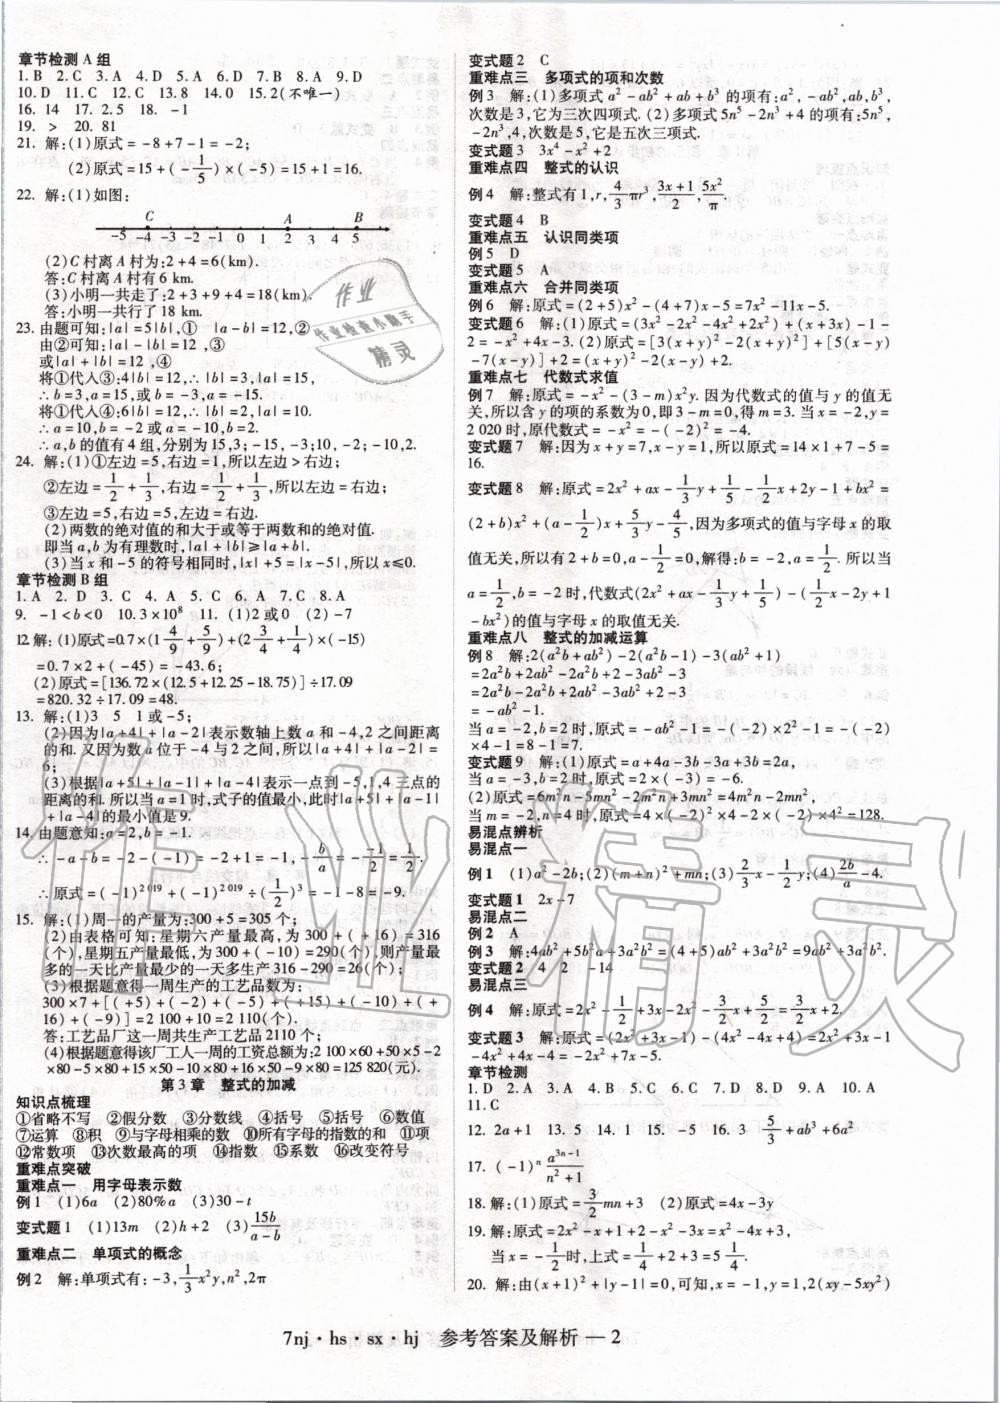 章节检测A组
1. B 2. C 3. A 4. D 5. D 6. D 7. B 8. A 9. D
10. D 11. C 12. C 13. 8 14. 0 15. 2(不唯一)
16. 14 17. 2.5 18. -1
19. > 20. 81
21. 解:(1)原式=-8+7-1=-2;
(2)原式=15+(-1/5)×(-5)=15+1=16.
22. 解:(1)如图:
C A B
-5 -4 -3 -2 -1 0 1 2 3 4 5
(2)C村离A村为:2+4=6(km).
答:C村离A村有6 km.
(3)小明一共走了:2+3+9+4=18(km).
答:小明一共行了18 km.
23. 由题可知:|a|=5|b|,① |a-b|=12,②
由②可知:|a|-|b|=12,③
或|a|+|b|=12,④
将①代入③:4|b|=12,∴|b|=3,|a|=15,
∴b=3,a=15,或b=-3,a=-15.
将①代入④:6|b|=12,∴|b|=2,|a|=10.
∴a=10,b=-2或a=-10,b=2.
∴a,b的值有4组,分别为15,3;-15,-3;10,-2;-10,2.
24. 解:(1)①左边=5,右边=1,所以左边>右边;
②左边=1/2+1/3,右边=1/2+1/3,所以左边=右边;
③左边=5,右边=5,左边=右边.
(2)两数的绝对值的和大于或等于两数和的绝对值.
即当a,b为有理数时,|a|+|b|≥|a+b|.
(3)当x和-5的符号相同时,|x|+5=|x-5|,所以x≤0.
章节检测B组
1. A 2. D 3. C 4. A 5. C 6. A 7. C 8. A
9. -1<b<0 10. 3×10⁸ 11. (1)2或0 (2)-7
12 解:(1)原式=0.7×(1 4/9+5/9)+(2 3/4+1/4)×(-15)
=0.7×2+(-45)=-43.6;
(2)原式=[136.72×(12.5+12.25-18.75)]÷17.09
=820.32÷17.09=48.
13. 解:(1)3 5 1或-5;
(2)因为|a+4|+|a-2|表示数轴上数a和-4,2之间距离
的和.又因为数a位于-4与2之间,所以|a+4|+|a-2|=
6;
(3)根据|a+5|+|a-1|+|a-4|表示一点到-5,1,4三点的
距离的和.所以当a=1时,式子的值最小,此时|a+5|+|a-1|
+|a-4|的最小值是9.
14. 由题意知:a=2,b=-1.
∴-a-b=-2-(-1)=-2+1=-1,-b/a=-(-1)/2=1/2
∴原式=(-1)²⁰¹⁹+(-1)²⁰¹⁹÷(1/2)³=-1-8=-9.
15. 解:(1)周一的产量为:300+5=305(个);
(2)由表格可知:星期六产量最高,为300+(+16)=316
(个),星期五产量最低,为300+(-10)=290(个),则产量最
多的一天比产量最少的一天多生产316-290=26(个);
(3)根据题意得一周生产的工艺品数为:
300×7+[(+5)+(-2)+(-5)+(+15)+(-10)+(+
16)+(-9)]=2 100+10=2 110(个).
答:工艺品厂这一周共生产工艺品2110个;
(4)根据题意得该厂工人一周的工资总额为:2 100×60+50×5-2
×80-5×80+15×50-10×80+16×50-9×80=125 820(元).
第3章 整式的加减
知识点梳理
①省略不写 ②假分数 ③分数线 ④括号 ⑤括号 ⑥数值
⑦运算 ⑧积 ⑨与字母相乘的数 ⑩所有字母的指数的和 ⑪项
⑫常数项 ⑬次数最高的项 ⑭指数 ⑮系数 ⑯改变符号
重难点突破
重难点一 用字母表示数
例1 (1)6a (2)80%a (3)30-t
变式题1 (1)13m (2)h+2 (3)15b/(a-b)
重难点二 单项式的概念
例2 解:单项式有:-3,1/3x²y,n²,2π
变式题2 C
重难点三 多项式的项和次数
例3 解:(1)多项式a²-ab²+ab+b³的项有:a²,-ab²,ab,b³,
次数是3,它为三次四项式.(2)多项式5n⁵-2n³+4的项有:5n⁵,
-2n³,4,次数是5,它是五次三项式.
变式题3 3x⁴-x²+2
重难点四 整式的认识
例4 解:整式有1,r,4/3πr³,(3x+1)/2,5x²/π.
变式题4 B
重难点五 认识同类项
例5 D
变式题5 A
重难点六 合并同类项
例6 解:原式=(2+5)x²-(4+7)x-5=7x²-11x-5.
变式题6 解:(1)原式=(3x²-2x²-4x²+2x²)+(x+3x)-1-
2=-x²+4x-3.(2)原式=[3(x+y)²-2(x+y)²]+[5(x-y)
-7(x-y)]=(x+y)²-2(x-y)+2.
重难点七 代数式求值
例7 解:原式=-x²-(3-m)x²y.因为代数式的值与y的值无
关,所以含y的项的系数为0,即3-m=0,得m=3.当x=-2,y=
2 020时,原代数式=-x²=-(-2)²=-4.
变式题7 解:因为x+y=7,x-y=1,所以原式=14×1+7-5=
16.
变式题8 解:原式=2x²+ax-1/3y+1/5-1/2x+2y-1+bx²=
(2+b)x²+(a-1/2)x+5/3y-4/5,因为多项式的值与字母x的取
值无关,所以有2+b=0,a-1/2=0,解得:b=-2,a=1/2.所以当
a=1/2,b=-2时,代数式(2x²+ax-1/3y+1/5)-(1/2x-2y+1
-bx²)的值与字母x的取值无关.
重难点八 整式的加减运算
例8 解:2(a²b+ab²)-2(a²b-1)-3(ab²+1)
=2a²b+2ab²-2a²b+2-3ab²-3
=2a²b-2a²b+2ab²-3ab²+2-3
=-ab²-1.
当a=-2,b=2时,原式=-ab²-1=-(-2)×2²-1=-(-2)
×4-1=8-1=7.
变式题9 解:(1)原式=a+4a-3b+3a+3b=2a,
当a=-3,b=2时,原式=2×(-3)=-6.
(2)原式=6m²n-5mn²-2m²n+3mn²=4m²n-2mn²,
当m=-2,n=4时,原式=4×(-2)²×4-2×(-2)×4²=128.
易混点辨析
易混点一
例1 (1)a²-2b;(2)(m+n)²+mn;(3)x-5/y;(4)2b/a-4.
变式题1 2x-7
易混点二
例2 A
例3 解:4ab²+5b²a+3a²b²=(4+5)ab²+3a²b²=9ab²+3a²b².
变式题2 4 2 -14
易混点三
例4 解:原式=2x²-1/2+3x-2x²-3/2x+5/2=3/2x+2,
变式题3 解:(1)原式=(2x²+3x-1)-(4x²-4x+4)=2x²+3x-1
-4x²+4x-4=-2x²+7x-5.
章节检测
1. D 2. A 3. C 4. A 5. B 6. C 7. B 8. C 9. A 10. A
11. C
12. 2a+1 13. 5 14. 1 15. -5 16. 3 -5/3+ab³+6a²
17. (-1)ⁿ a³ⁿ⁻¹/(n²+1)
18. 解:(1)原式=3/2mn+3 (2)原式=4x-3y
19. 解:原式=2x²-x²-5x+x+1+2=x²-4x+3,
当x=-1/2时,上式=1/4+2+3=5 1/4.
20. 解:由(x+1)²+|y-1|=0,可知,x=-1,y=1,2(xy-5xy²)
7nj·hs·sx·hj 参考答案及解析—2
作业
作业检查小助手
精灵
作业精灵